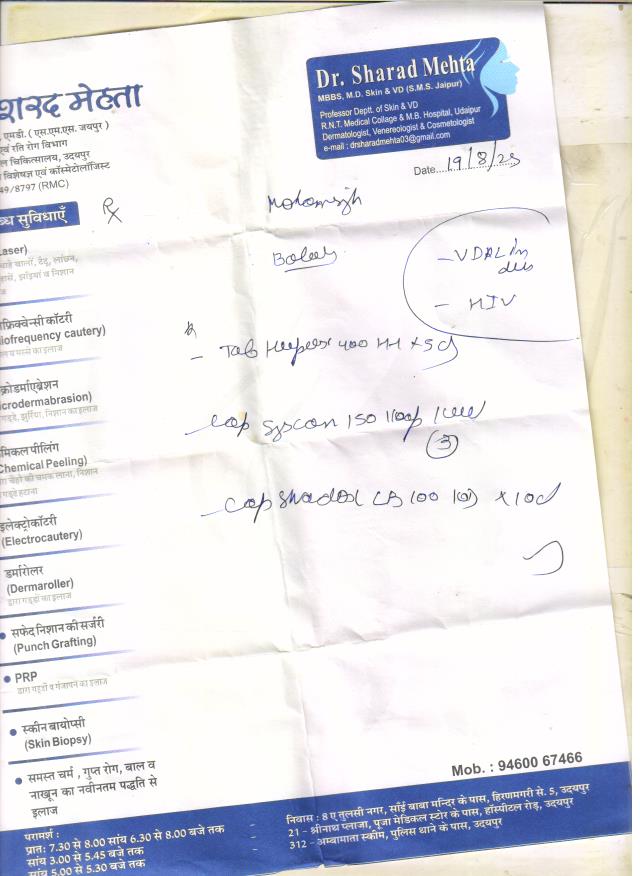 शरद मेहता
एमडी. ( एस.एम.एस. जयपुर )
एवं रति रोग विभाग
चिकित्सालय, उदयपुर
विशेषज्ञ एवं कॉस्मेटोलॉजिस्ट
49/8797 (RMC)
Dr. Sharad Mehta
MBBS, M.D. Skin & VD (S.M.S. Jaipur)
Professor Deptt. of Skin & VD
R.N.T. Medical Collage & M.B. Hospital, Udaipur
Dermatologist, Venereologist & Cosmetologist
e-mail : drsharadmehta03@gmail.com
Date....19/8/25
सुविधाएँ
Rx
- VDRL in
- HIV
aser)
फ्रिक्वेन्सी कॉटरी
iofrequency cautery)
- Tab 400 x 5d
क्रोडर्माएब्रेशन
icrodermabrasion)
गड्ढे, झुर्रिया, निशान का इलाज
- Cap Syscan 150
3
मिकल पीलिंग
Chemical Peeling)
- Cap 100 x 10d
इलेक्ट्रोकॉटरी
(Electrocautery)
डर्मारोलर
(Dermaroller)
द्वारा गड्ढों का इलाज
• सफेद निशान की सर्जरी
(Punch Grafting)
• PRP
द्वारा गड्ढों व गंजापन का इलाज
• स्कीन बायोप्सी
(Skin Biopsy)
• समस्त चर्म , गुप्त रोग, बाल व
नाखून का नवीनतम पद्धति से
इलाज
Mob. : 94600 67466
परामर्श :
प्रातः 7.30 से 8.00 सांय 6.30 से 8.00 बजे तक
सांय 3.00 से 5.45 बजे तक
सांय 5.00 से 5.30 बजे तक
निवास : 8 ए तुलसी नगर, साँई बाबा मन्दिर के पास, हिरणमगरी से. 5, उदयपुर
21 - श्रीनाथ प्लाजा, पूजा मेडिकल स्टोर के पास, हॉस्पीटल रोड़, उदयपुर
312 - अम्बामाता स्कीम, पुलिस थाने के पास, उदयपुर